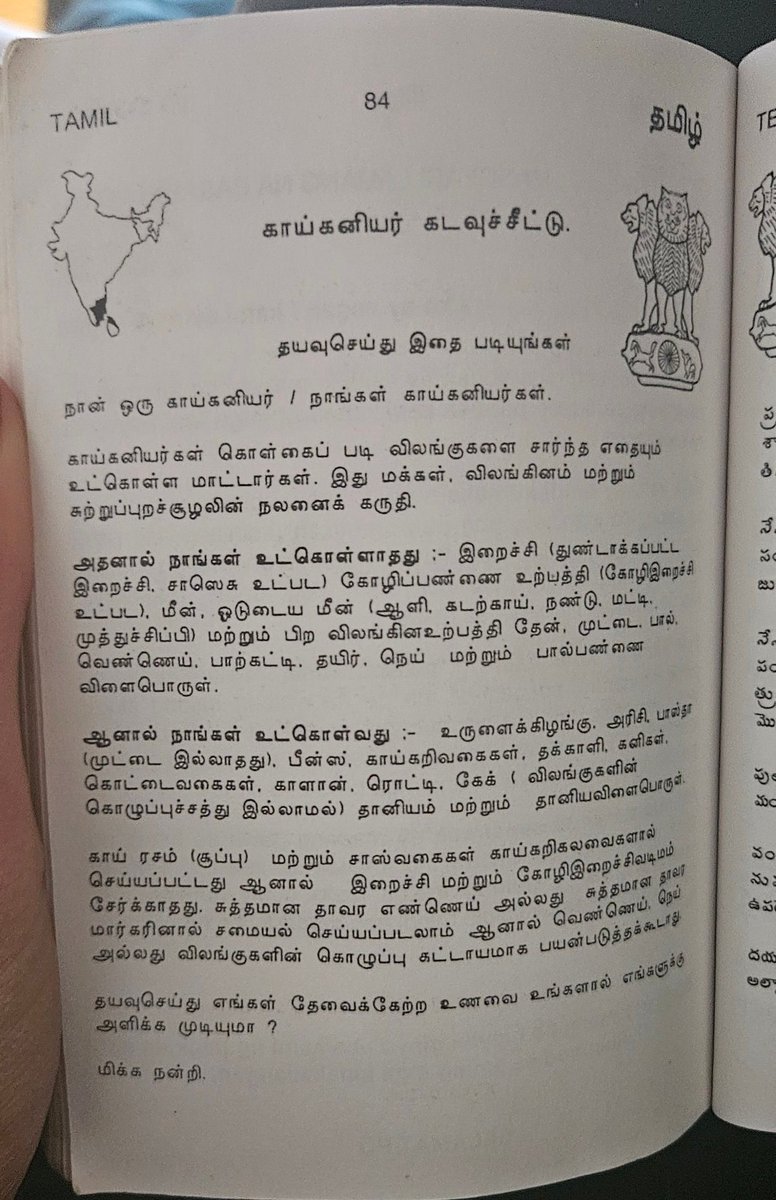 84
TAMIL
தமிழ்
TE
காய்கனியர் கடவுச்சீட்டு.
தயவுசெய்து இதை படியுங்கள்
நான் ஒரு காய்கனியர் / நாங்கள் காய்கனியர்கள்.
காய்கனியர்கள் கொள்கைப் படி விலங்குகளை சார்ந்த எதையும்
உட்கொள்ள மாட்டார்கள். இது மக்கள், விலங்கினம் மற்றும்
சுற்றுப்புறச்சூழலின் நலனைக் கருதி.
அதனால் நாங்கள் உட்கொள்ளாதது :- இறைச்சி (துண்டாக்கப்பட்ட
இறைச்சி, சாஸெசு உட்பட) கோழிப்பண்ணை உற்பத்தி (கோழிஇறைச்சி
உட்பட), மீன், ஒடுடைய மீன் (ஆளி, கடற்காய், நண்டு, மட்டி,
முத்துச்சிப்பி) மற்றும் பிற விலங்கினஉற்பத்தி தேன், முட்டை, பால்,
வெண்ணெய், பாற்கட்டி, தயிர், நெய் மற்றும் பால்பண்ணை
விளைபொருள்.
ஆனால் நாங்கள் உட்கொள்வது :- உருளைக்கிழங்கு, அரிசி, பாஸ்தா
(முட்டை இல்லாதது), பீன்ஸ், காய்கறிவகைகள், தக்காளி, கனிகள்,
கொட்டைவகைகள், காளான், ரொட்டி, கேக் ( விலங்குகளின்
கொழுப்புச்சத்து இல்லாமல்) தானியம் மற்றும் தானியவிளைபொருள்.
காய் ரசம் (சூப்பு) மற்றும் சாஸ்வகைகள் காய்கறிகலவைகளால்
செய்யப்பட்டது ஆனால் இறைச்சி மற்றும் கோழிஇறைச்சிவடிமம்
சேர்க்காதது. சுத்தமான தாவர எண்ணெய் அல்லது சுத்தமான தாவர
மார்கரினால் சமையல் செய்யப்படலாம் ஆனால் வெண்ணெய், நெய்
அல்லது விலங்குகளின் கொழுப்பு கட்டாயமாக பயன்படுத்தக்கூடாது.
தயவுசெய்து எங்கள் தேவைக்கேற்ற உணவை உங்களால் எங்களுக்கு
அளிக்க முடியுமா ?
மிக்க நன்றி.